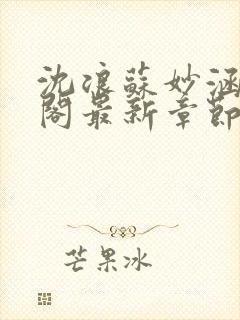 沈浪蘇妙涵
閣最新章節
芒果冰